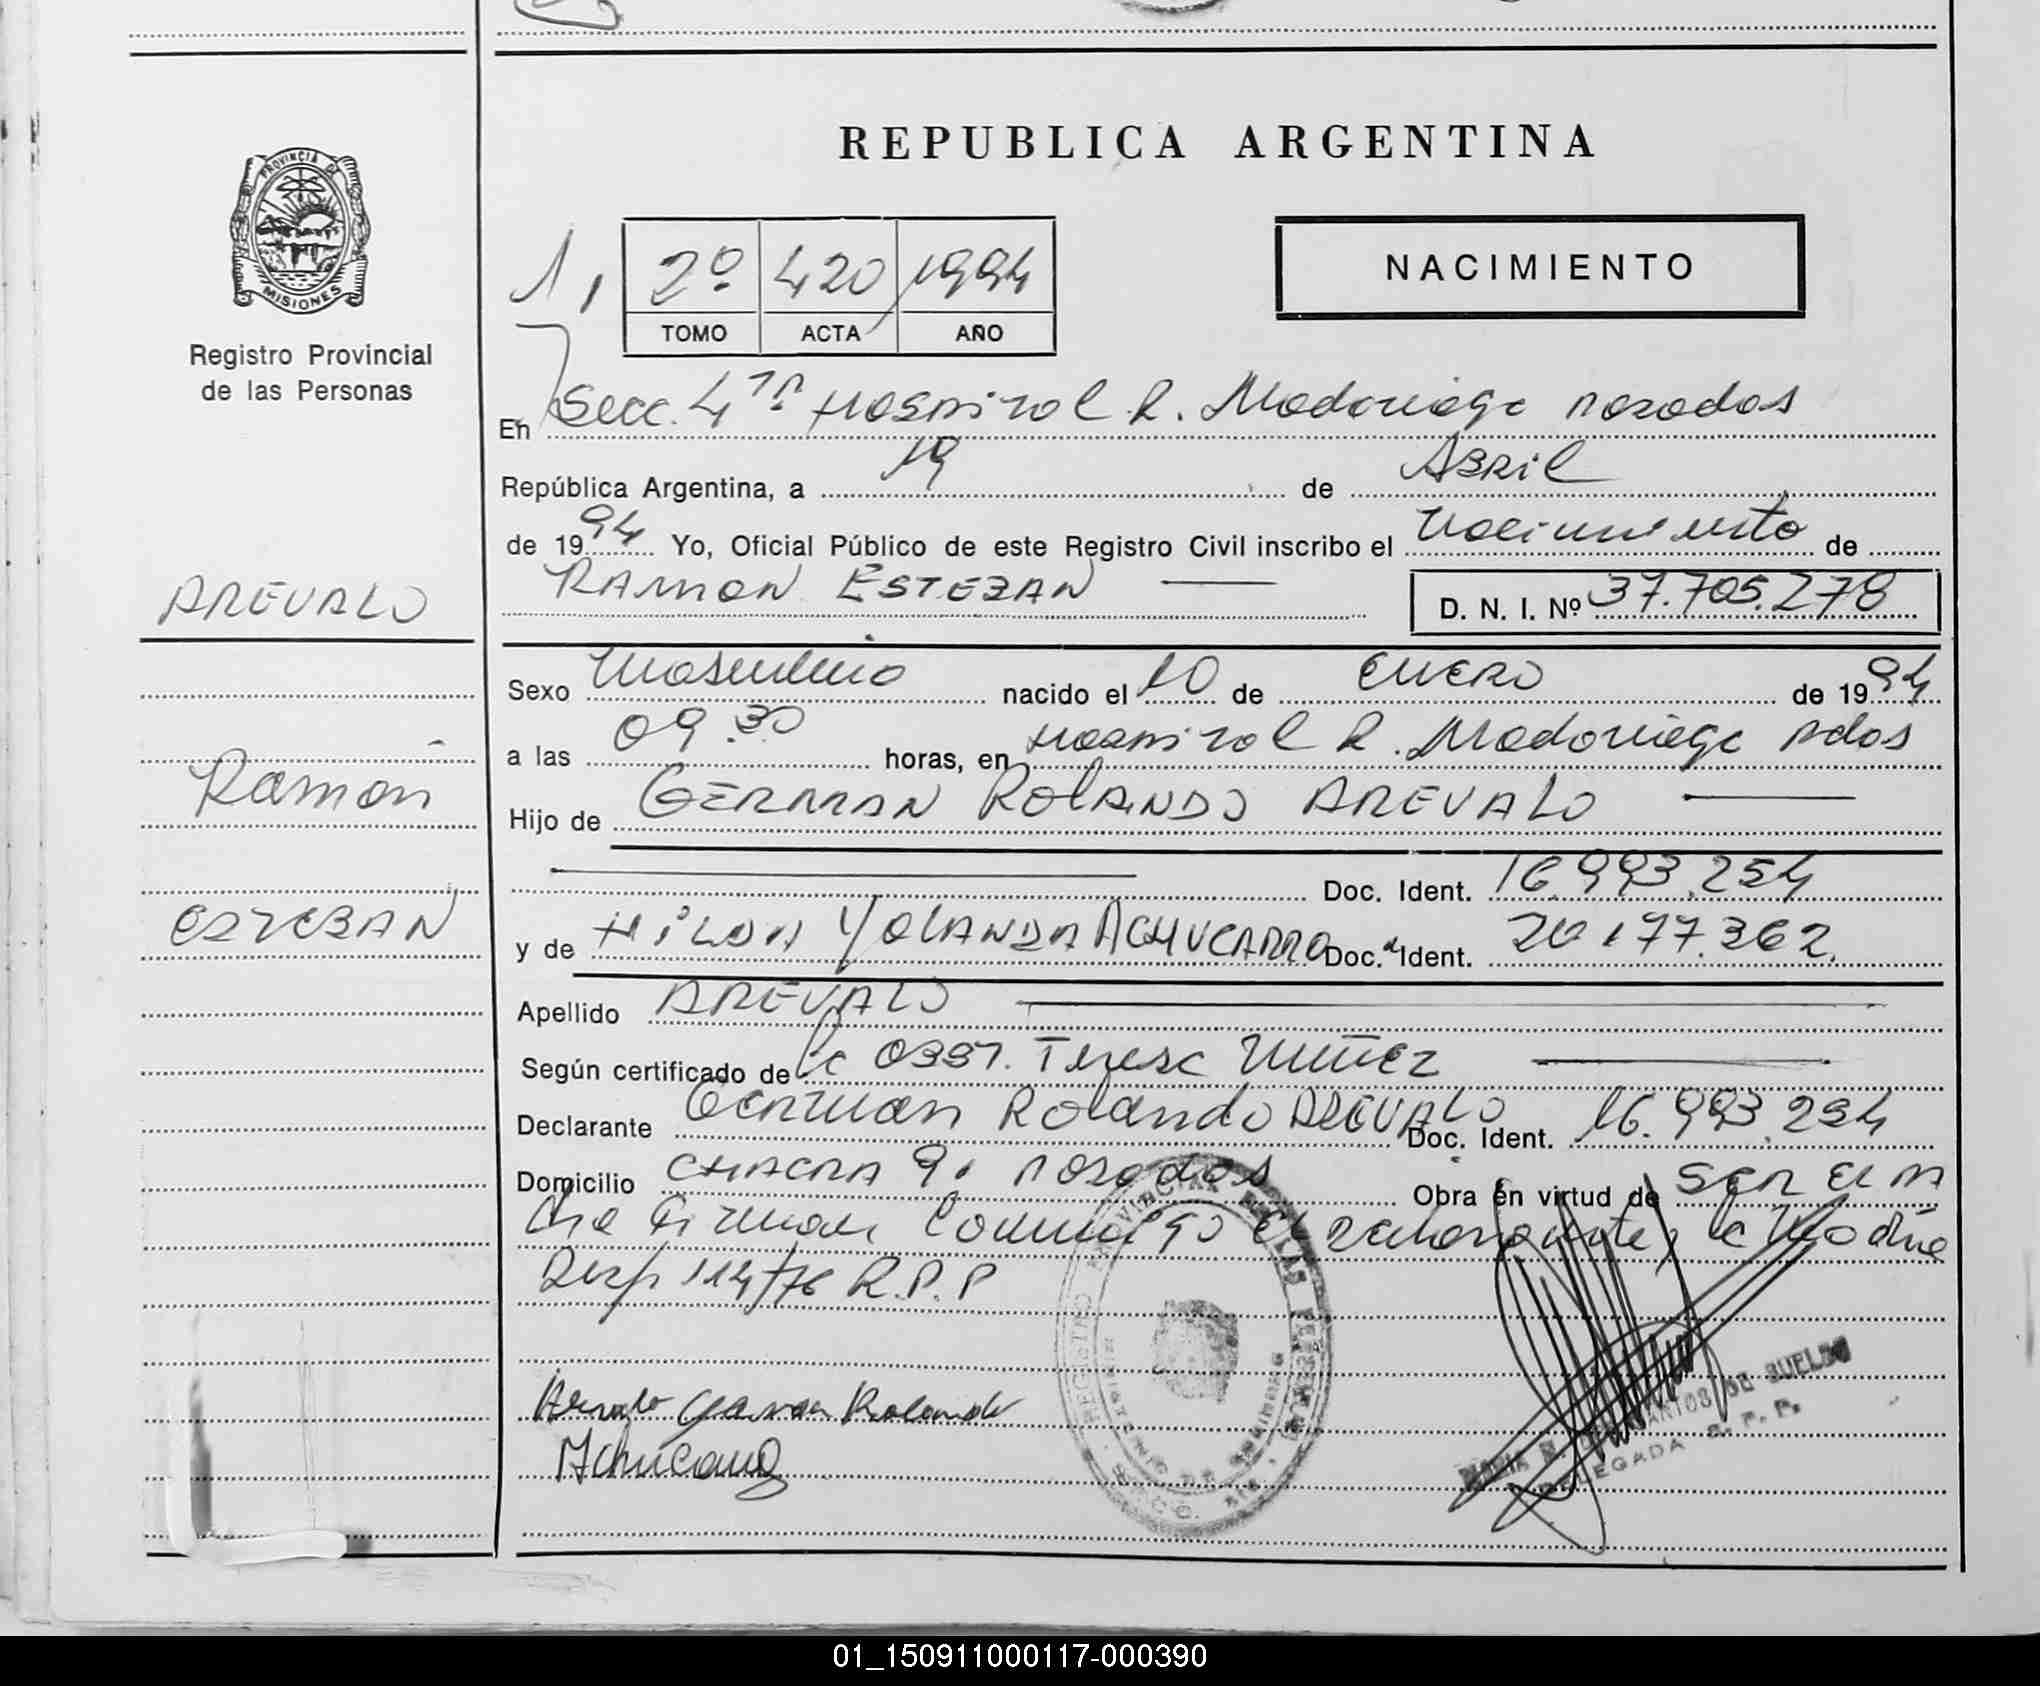 REPUBLICA ARGENTINA
PROVINCIA DE
MISIONES
Registro Provincial
de las Personas
1,
2º 420 1994
TOMO ACTA AÑO
NACIMIENTO
En Secc. 4ta Hospital R. Madariaga Posadas
República Argentina, a 19 de Abril
de 1994 Yo, Oficial Público de este Registro Civil inscribo el Nacimiento de
RAMON ESTEBAN D. N. I. Nº 37.705.278
AREVALO
Ramón
ESTEBAN
Sexo Masculino nacido el 10 de ENERO de 1994
a las 09.30 horas, en Hospital R. Madariaga Pdas
Hijo de GERMAN ROLANDO AREVALO
Doc. Ident. 16.993.254
y de HILDA YOLANDA ACHUCARRO Doc. Ident. 20.177.362.
Apellido AREVALO
Según certificado de la OBST. Teresa Nuñez
Declarante German Rolando AREVALO Doc. Ident. 16.993.254
Domicilio CHACRA 9. Posadas Obra en virtud de SER EL P
dre Firman Conmigo El declarante, la Madre
Disp 114/76 R.P.P
Arevalo German Rolando
Achucarro
REGISTRO PROVINCIAL DE LAS PERSONAS
DELEGADA R. P. P.
01_150911000117-000390